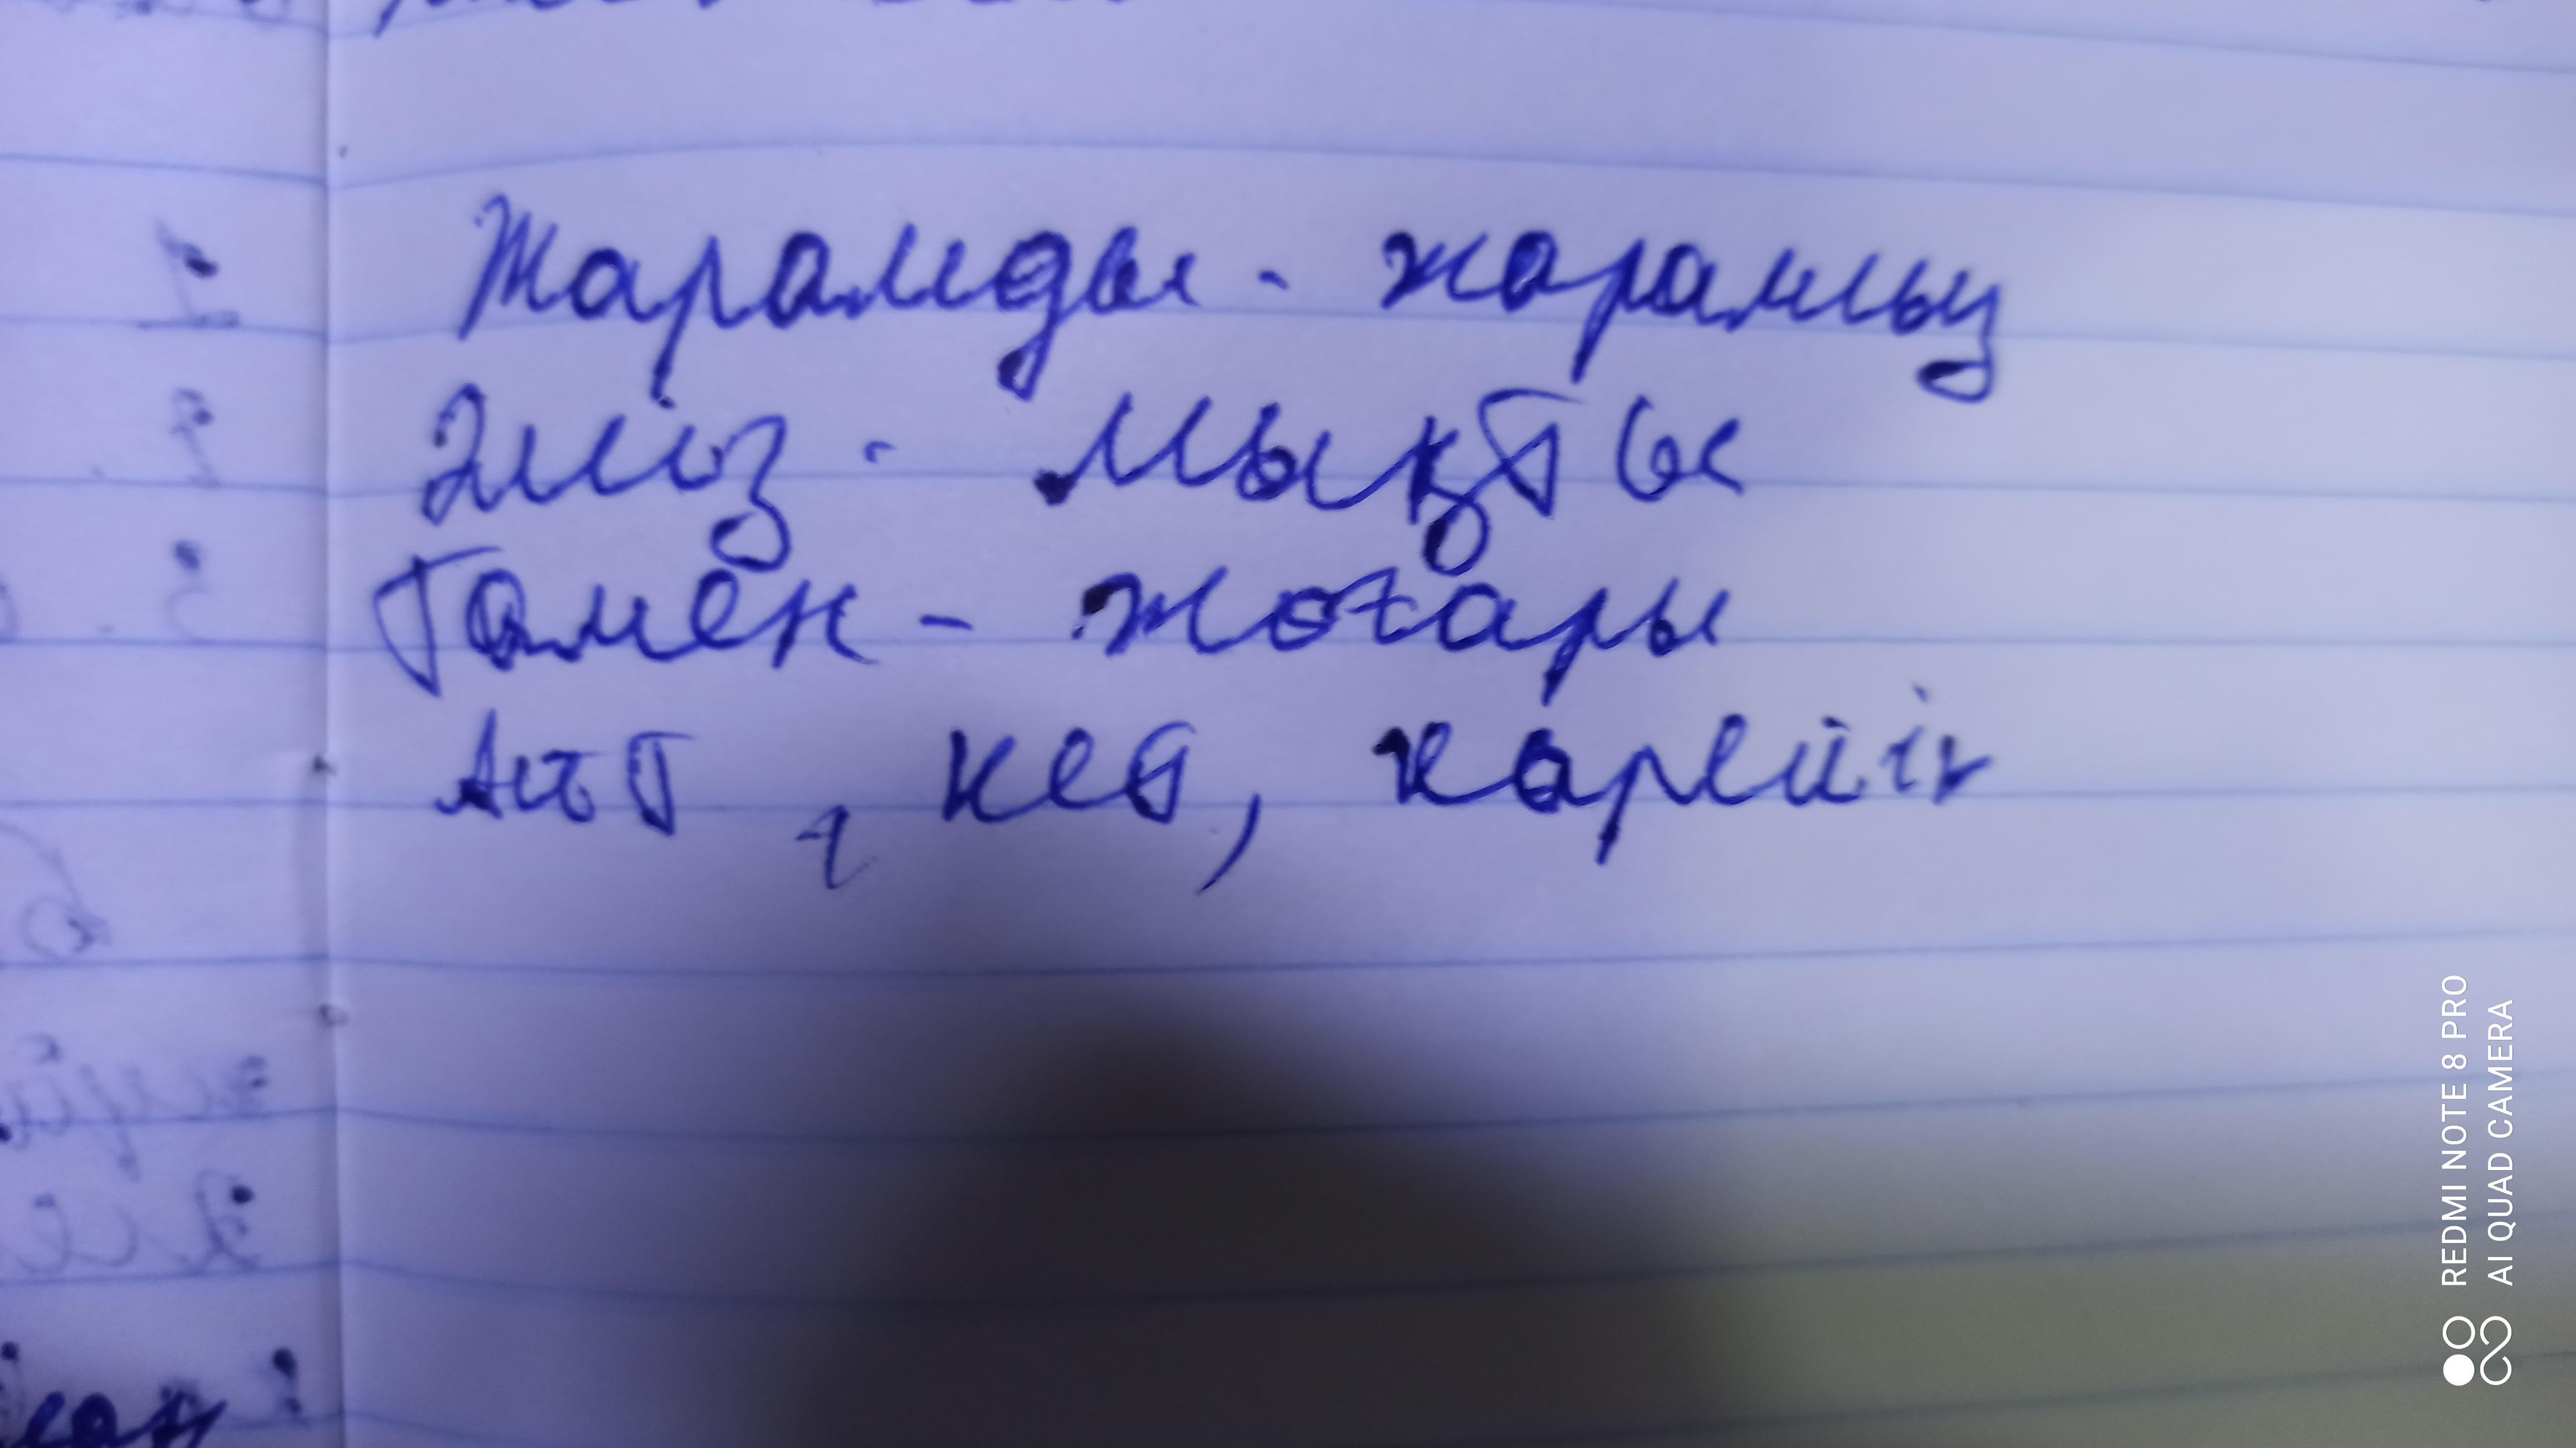 Жарамды - жарамсыз
Әлсіз - мықты
Төмен - жоғары
кет, керейін
REDMI NOTE 8 PRO
AI QUAD CAMERA